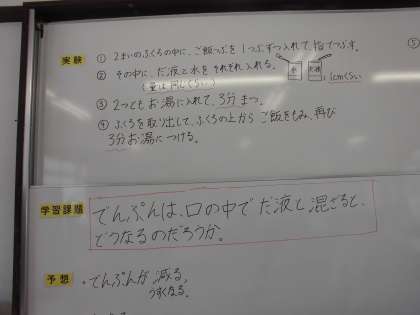 実験 ① 2まいのふくろの中に、ご飯つぶを1つぶずつ入れて、指でつぶす。
② その中に、だ液と水をそれぞれ入れる。
(量は同じくらい)
水 だ液 1cmくらい
③ 2つともお湯に入れて、3分まつ。
④ ふくろを取り出して、ふくろの上からご飯をもみ、再び
3分お湯につける。
⑤
学習課題 でんぷんは、口の中でだ液と混ざると、
どうなるのだろうか。
予想 ・でんぷんが減る。
うすくなる。